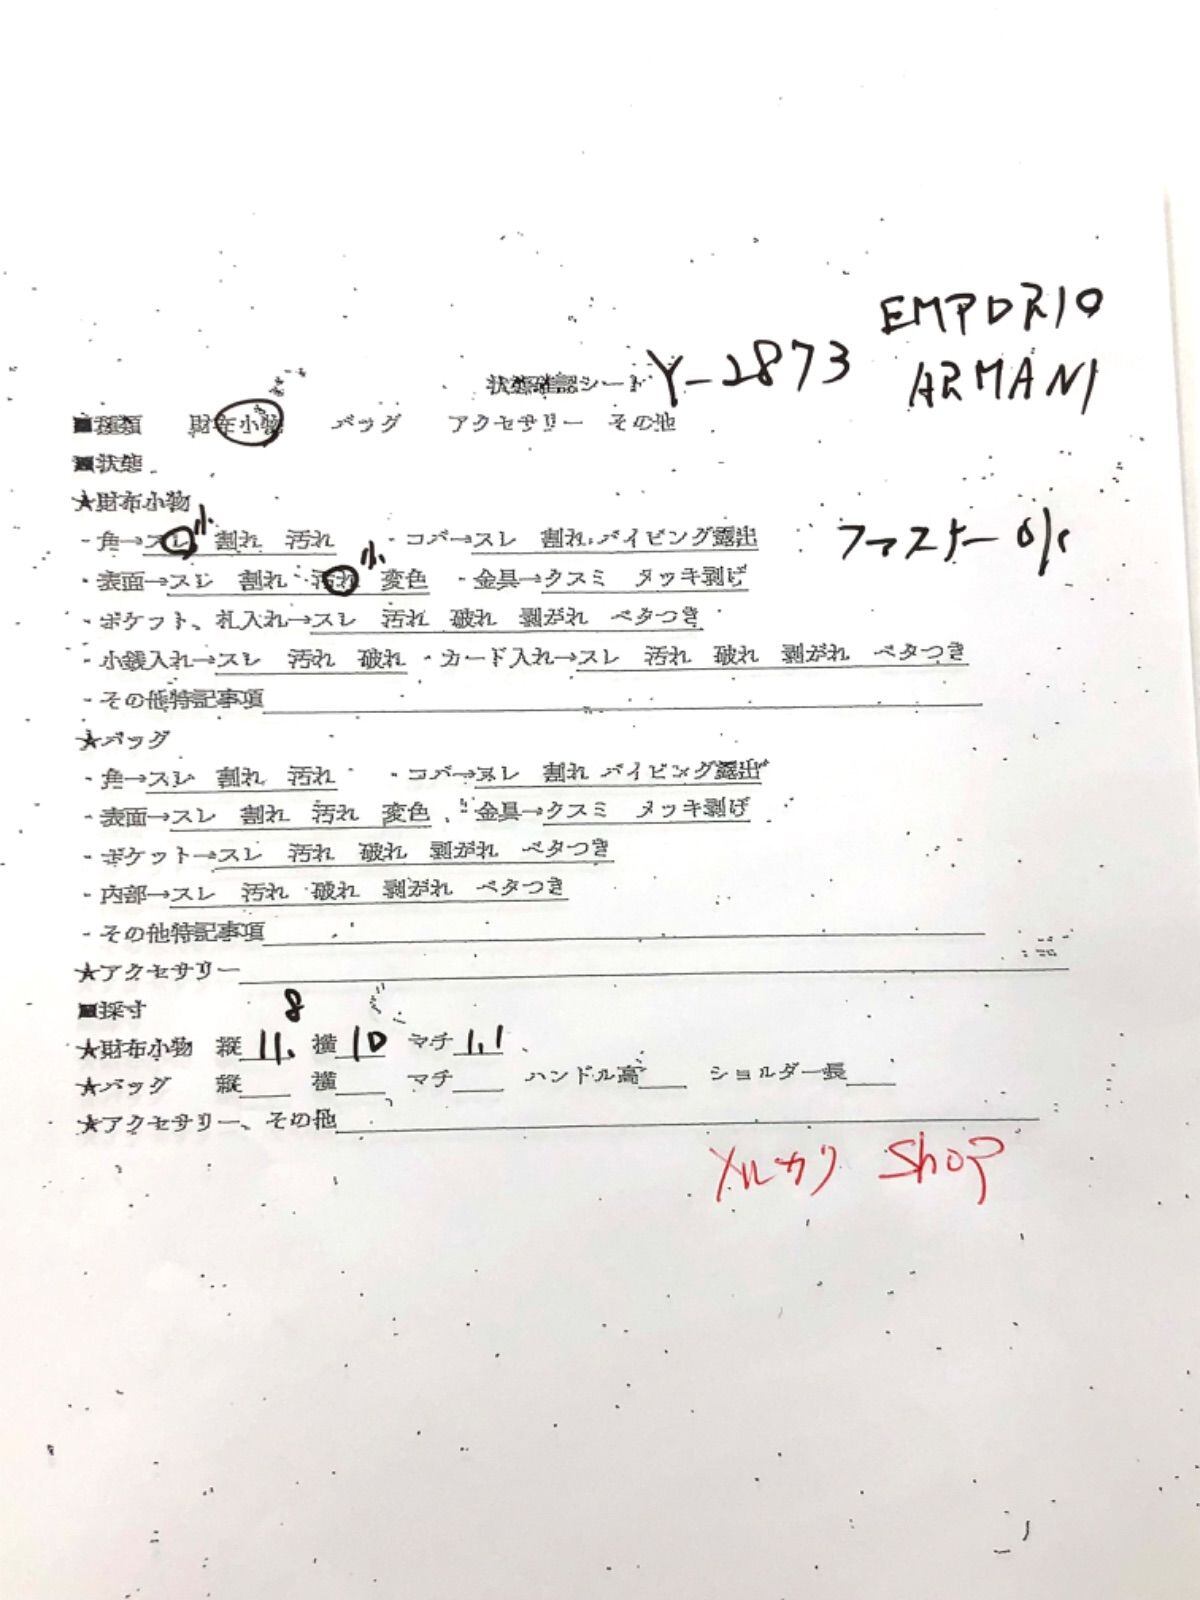 EMPORIO
ARMANI
状態確認シート Y-2873
■種類 財布小物 バッグ アクセサリー その他
■状態
★財布小物
・角→スレ 小 割れ 汚れ ・コバ→スレ 割れ パイピング露出 ファスナー ok
・表面→スレ 割れ 汚れ 小 変色 ・金具→クスミ メッキ剥げ
・ポケット、札入れ→スレ 汚れ 破れ 剥がれ ベタつき
・小銭入れ→スレ 汚れ 破れ ・カード入れ→スレ 汚れ 破れ 剥がれ ベタつき
・その他特記事項
★バッグ
・角→スレ 割れ 汚れ ・コバ→スレ 割れ パイピング露出
・表面→スレ 割れ 汚れ 変色 ・金具→クスミ メッキ剥げ
・ポケット→スレ 汚れ 破れ 剥がれ ベタつき
・内部→スレ 汚れ 破れ 剥がれ ベタつき
・その他特記事項
★アクセサリー
■採寸
★財布小物 縦 11.8 横 10 マチ 1.1
★バッグ 縦 横 マチ ハンドル高 ショルダー長
★アクセサリー、その他
メルカリ Shop